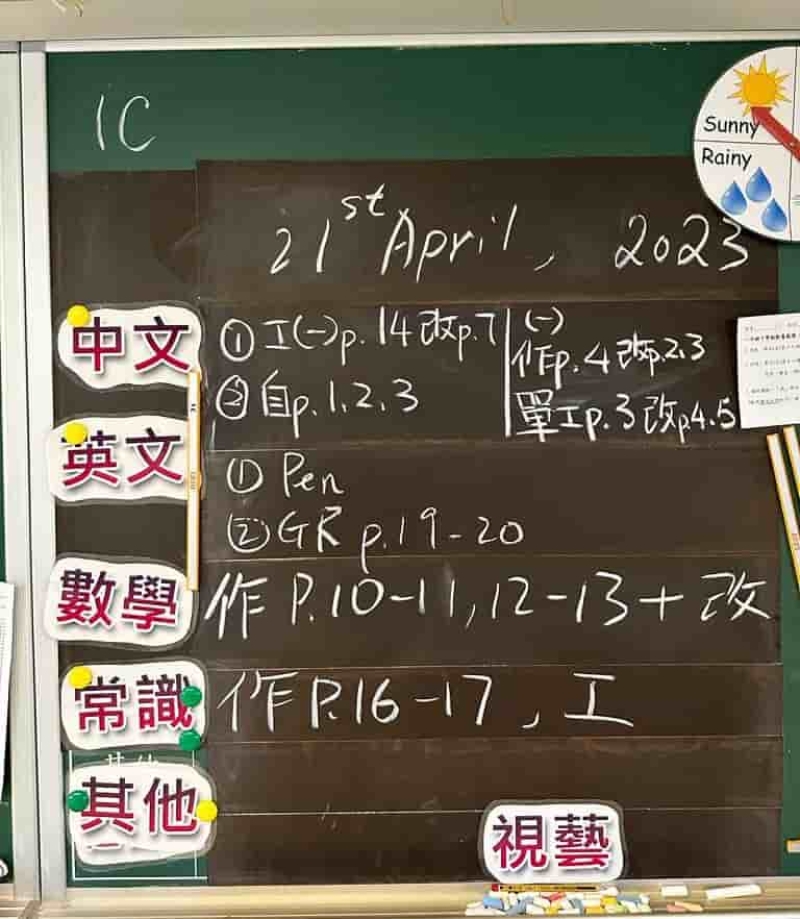 1C
Sunny
Rainy
21st April, 2023
中文
① 工(一)p.14改p.7
(一)作p.4改p.2,3
② 自p.1,2,3
單工p.3改p4.5
英文
① Pen
② GR p.19-20
數學
作 P.10-11,12-13+改
常識
作P.16-17,工
其他
視藝